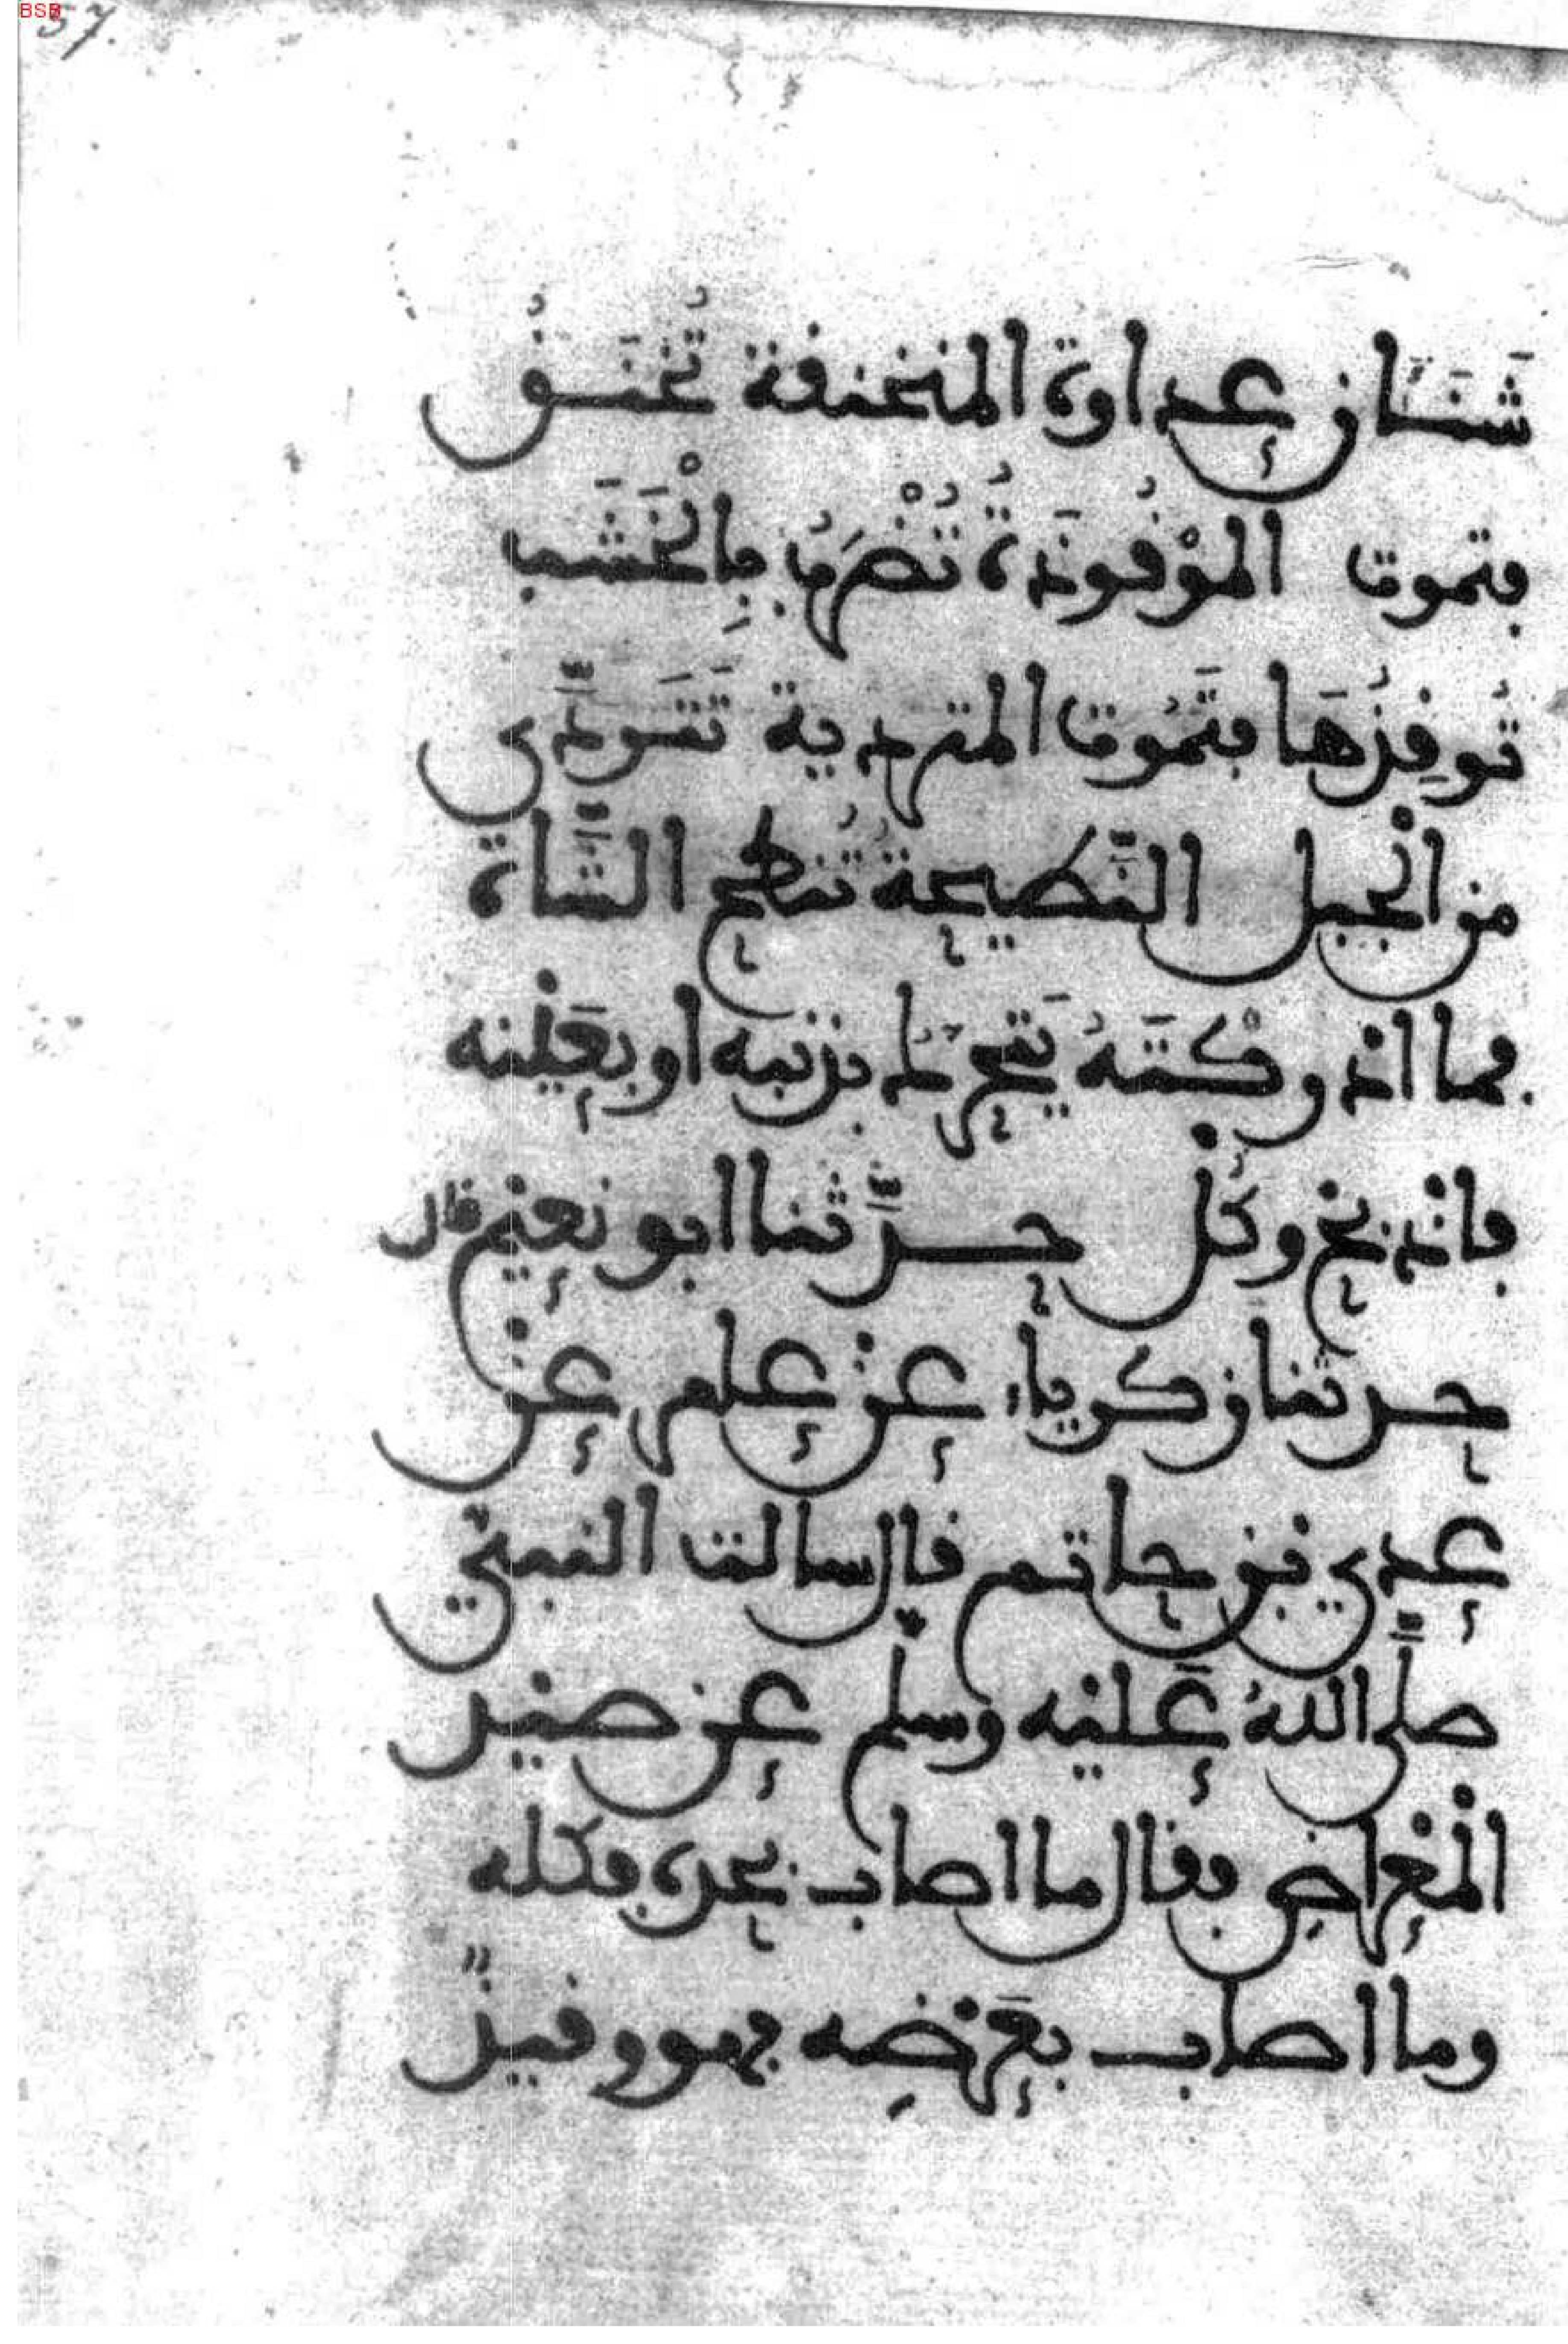 BSB
57.
شَنَئَانُ عداوة المنخنقة تُخنَقُ
فتموت الموْقُوذَةُ تُضْرَبُ بِالْخَشَب
تُوقِذُهَا فتَمُوت المتردية تَتَردَّى
من الجبل النَّطيحة تُنطح الشَّاة
فما ادركتَهُ يَتحرك بذنبه او بعَيْنه
فاذبح وكُل حدَّثنا ابو نعيْم قال
حدثنا زكرياء عنْ عامر عنْ
عدي بن حاتم قال سالت النبيّ
صلَّى اللهُ عَليْه وسلّم عن صيْد
الْمعْراضِ فقال ما اصاب بحده فكله
وما اصاب بعَرْضِه فهو وقيذٌ